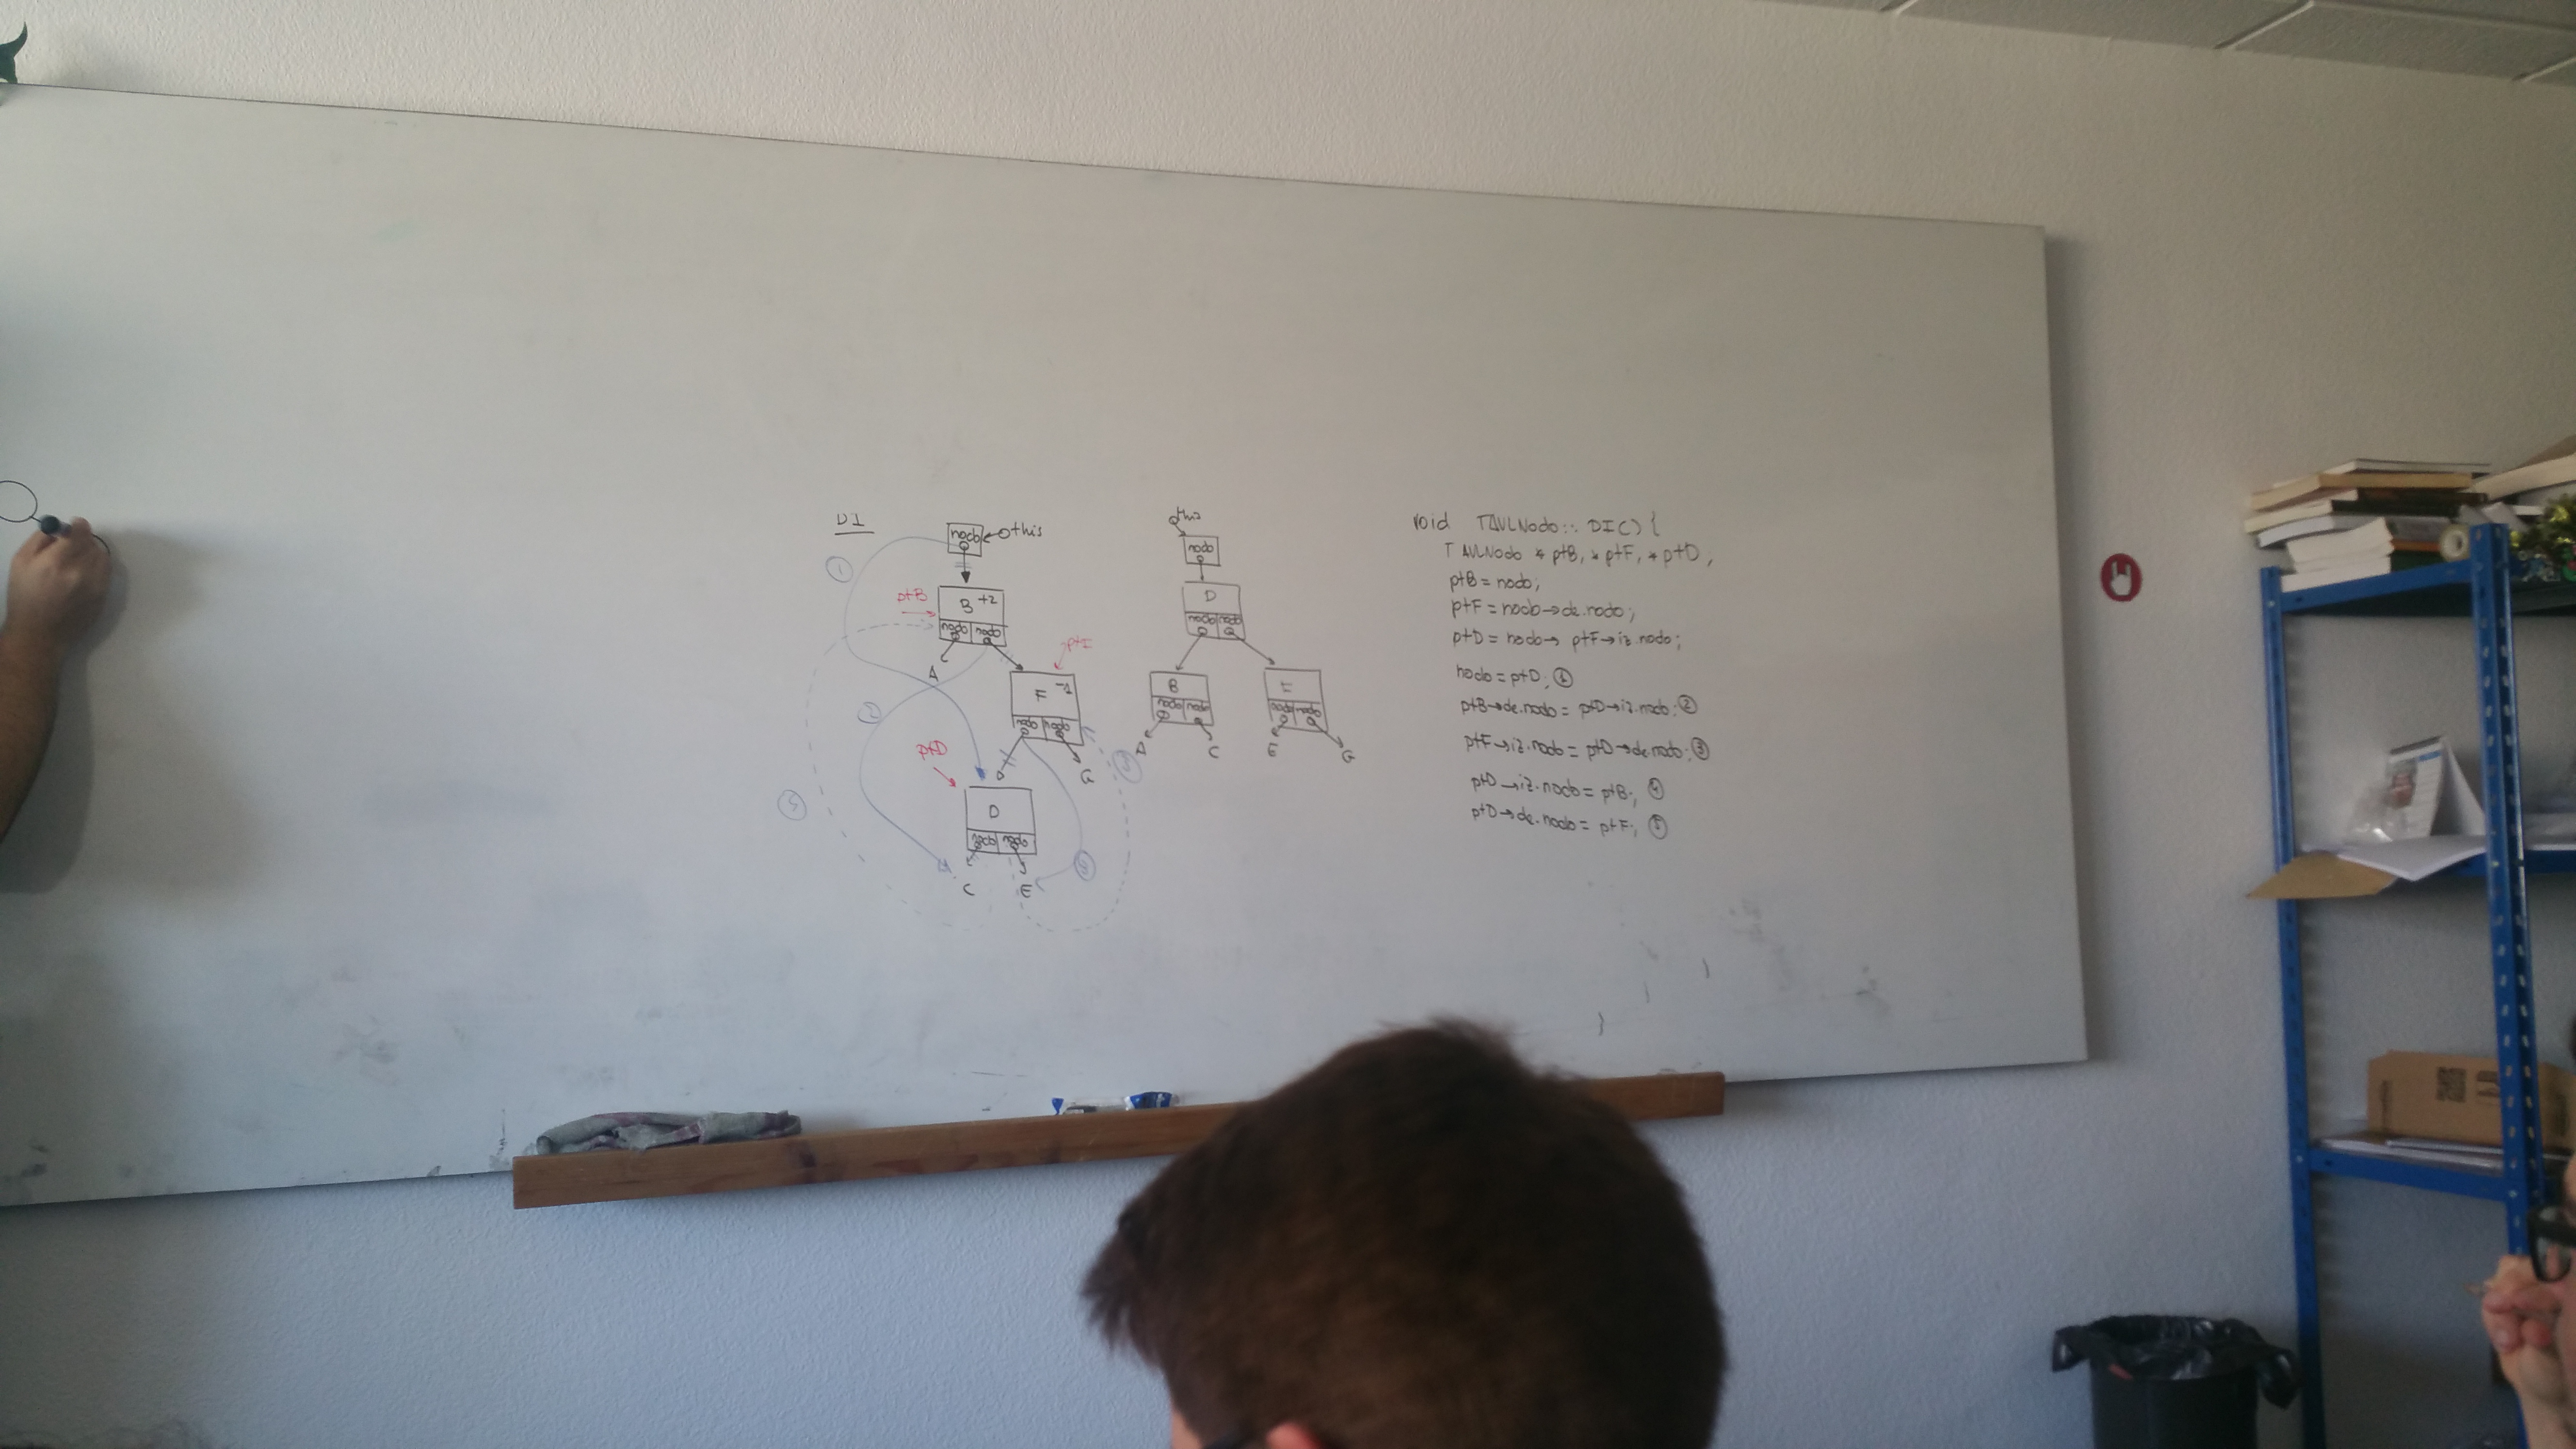 DI
nodo
this
①
ptB
B +2
nodo nodo
A
ptF
F -1
②
nodo nodo
ptD
G
D
nodo nodo
C E
this
nodo
D
nodo nodo
B
nodo nodo
nodo nodo
A C E G
void TAVLNodo::DI() {
TAVLNodo * ptB, * ptF, * ptD,
ptB = nodo;
ptF = nodo→de.nodo;
ptD = nodo→ ptF→iz.nodo;
nodo = ptD; ①
ptB→de.nodo = ptD→iz.nodo; ②
ptF→iz.nodo = ptD→de.nodo; ③
ptD→iz.nodo = ptB; ④
ptD→de.nodo = ptF; ⑤
}